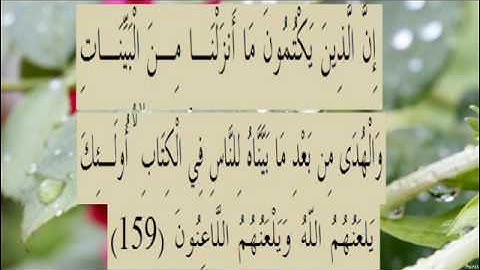 إِنَّ الَّذِينَ يَكْتُمُونَ مَا أَنزَلْنَا مِنَ الْبَيِّنَاتِ
وَالْهُدَى مِن بَعْدِ مَا بَيَّنَّاهُ لِلنَّاسِ فِي الْكِتَابِ ۙ أُولَـئِكَ
يَلعَنُهُمُ اللَّهُ وَيَلْعَنُهُمُ اللَّاعِنُونَ (159)